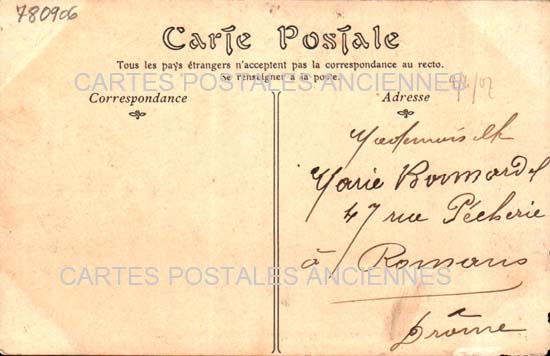 780906
Carte Postale
Tous les pays étrangers n'acceptent pas la correspondance au recto.
Se renseigner à la poste.
CARTES POSTALES ANCIENNES
Correspondance
Adresse
Mademoiselle
Marie
47 rue Pêcherie
à Romans
CARTES POSTALES ANCIENNES
Drôme